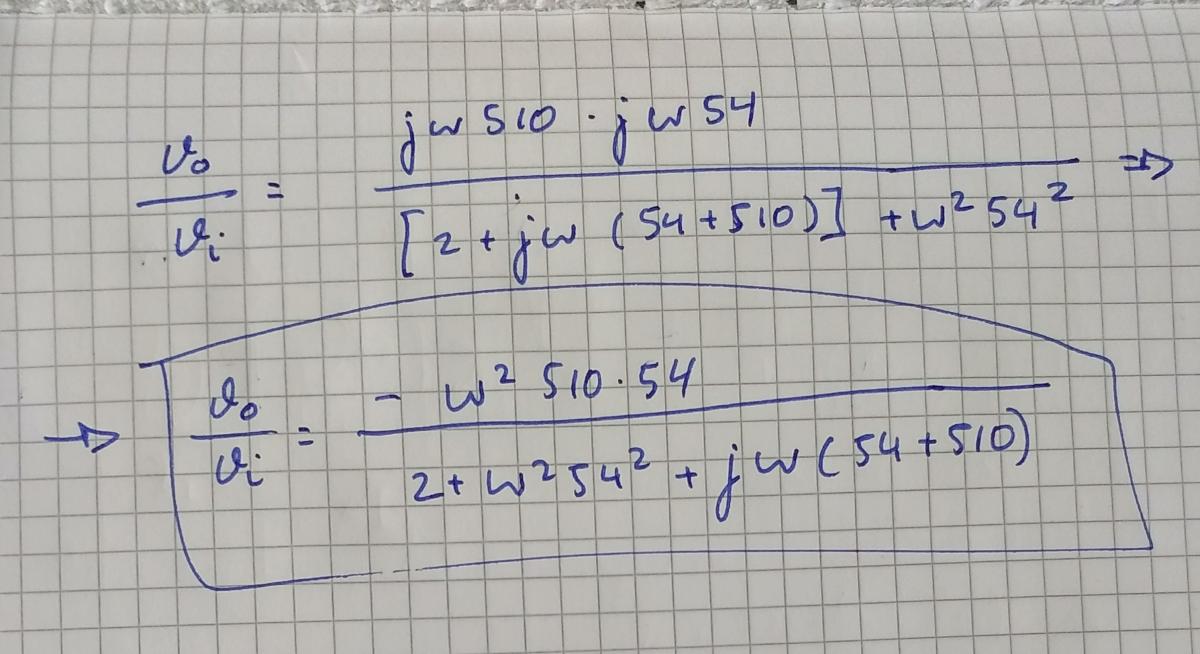 v₀/vᵢ = (jw 510 · jw 54) / ([2 + jw (54 + 510)] + w² 54²) ⇒
→ v₀/vᵢ = (- w² 510 · 54) / (2 + w² 54² + jw (54 + 510))